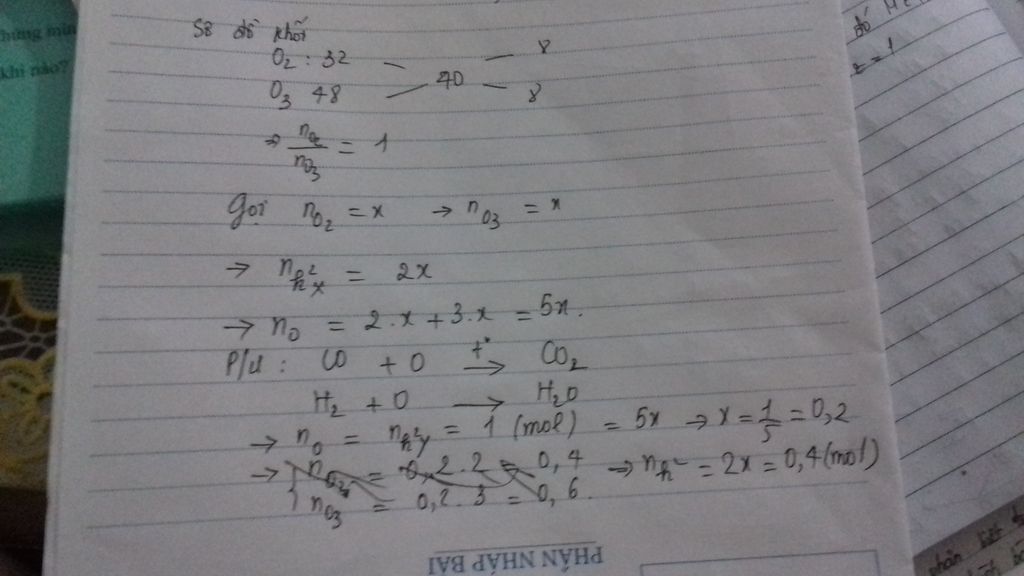 Sơ đồ khối
O₂ : 32 — — 8
40
O₃ 48 — — 8
⇒ nO₂ / nO₃ = 1
Gọi nO₂ = x → nO₃ = x
→ n h² x = 2x
→ nO = 2.x + 3.x = 5x.
P/ư : CO + O t° → CO₂
H₂ + O → H₂O
→ nO = n h² y = 1 (mol) = 5x → x = 1/5 = 0,2
→ = 0,2.2 = 0,4 → n h² = 2x = 0,4 (mol)
nO₃ = 0,2.3 = 0,6.
PHẦN NHÁP BÀI
khi nào?
= 1